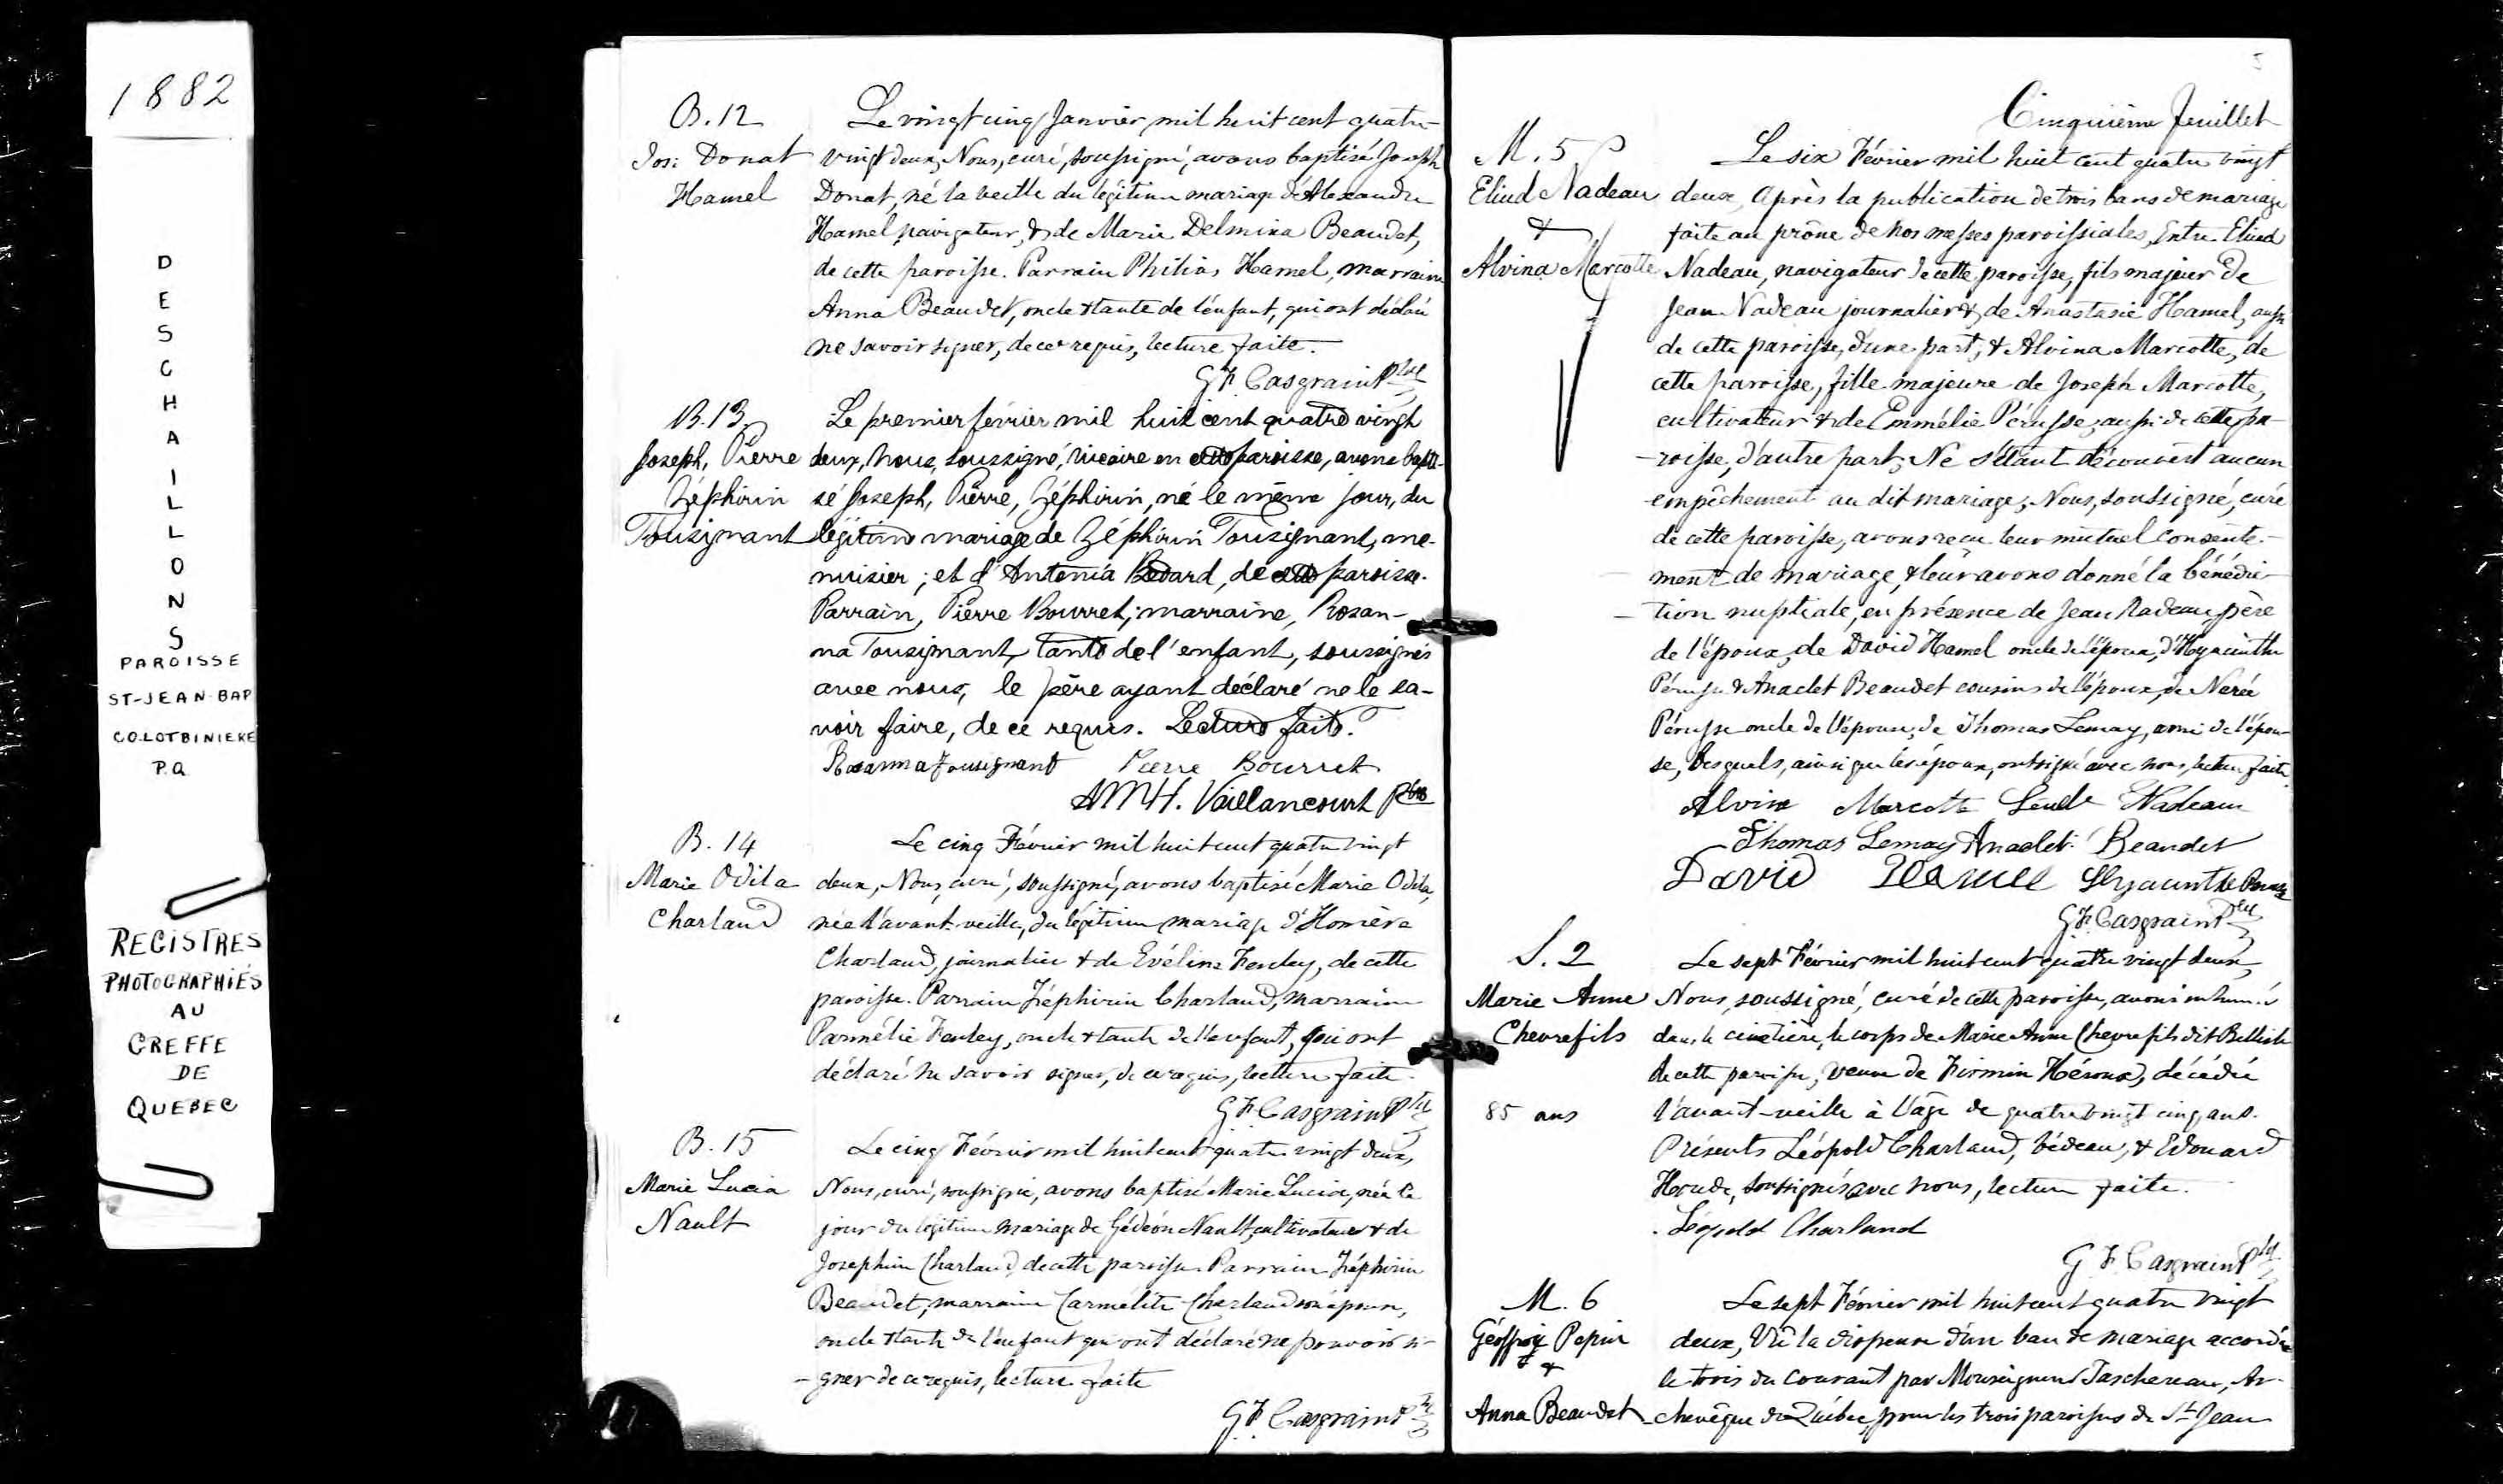 1882
DESCHAILLONS
PAROISSE
ST-JEAN-BAP
CO. LOTBINIERE
P.Q.
REGISTRES
PHOTOGRAPHIÉS
AU
GREFFE
DE
QUEBEC
B. 12
Jos: Donat
Hamel
Le vingt cinq Janvier mil huit cent quatre-
vingt deux, Nous, curé, soussigné, avons baptisé Joseph
Donat, né la veille du légitime mariage d'Alexandre
Hamel, navigateur, & de Marie Delmina Beaudet,
de cette paroisse. Parrain Philias Hamel, marraine
Anna Beaudet, oncle & tante de l'enfant, qui ont déclaré
ne savoir signer, de ce requis, lecture faite.
G F. Casgrain Ptre
B. 13
Joseph, Pierre
Zéphirin
Tousignant
Le premier février mil huit cent quatre vingt
deux, nous, soussigné, vicaire en cette paroisse, avons bapti-
sé Joseph, Pierre, Zéphirin, né le même jour, du
légitime mariage de Zéphirin Tousignant, me-
nuisier; et d'Antonia Bedard, de cette paroisse.
Parrain, Pierre Bourret; marraine, Rosan-
na Tousignant, tante de l'enfant, soussignés
avec nous, le père ayant déclaré ne le sa-
voir faire, de ce requis. Lecture faite.
Rosanna Tousignant Pierre Bourret
A M H. Vaillancourt Ptre
B. 14
Marie Odila
Charland
Le cinq Février mil huit cent quatre vingt
deux, Nous, curé, soussigné, avons baptisé Marie Odila,
née l'avant-veille, du légitime mariage d'Homère
Charland, journalier & de Evéline Fenley, de cette
paroisse. Parrain Zéphirin Charland, marraine
Parmélie Fenley, oncle & tante de l'enfant, qui ont
déclaré ne savoir signer, de ce requis, lecture faite.
G F. Casgrain Ptre
B. 15
Marie Lucia
Nault
Le cinq Février mil huit cent quatre vingt deux,
Nous, curé, soussigné, avons baptisé Marie Lucia, née le
jour du légitime mariage de Gédéon Nault, cultivateur & de
Josephine Charland, de cette paroisse. Parrain Zéphirin
Beaudet, marraine Carmélite Charland son épouse,
oncle & tante de l'enfant qui ont déclaré ne pouvoir si-
-gner de ce requis, lecture faite
G F. Casgrain Ptre
5
Cinquième feuillet
M. 5
Eliud Nadeau
&
Alvina Marcotte
Le six Février mil huit cent quatre vingt
deux, Après la publication de trois bans de mariage
faite au prône de nos messes paroissiales, Entre Eliud
Nadeau, navigateur de cette paroisse, fils majeur de
Jean Nadeau journalier & de Anastasie Hamel, aussi
de cette paroisse, d'une part; & Alvina Marcotte, de
cette paroisse, fille majeure de Joseph Marcotte,
cultivateur & de Emmélie Pérusse, aussi de cette pa-
-roisse, d'autre part; Ne s'étant découvert aucun
empêchement au dit mariage; Nous, soussigné, curé
de cette paroisse, avons reçu leur mutuel consente-
ment de mariage, & leur avons donné la bénédic-
-tion nuptiale, en présence de Jean Nadeau, père
de l'époux, de David Hamel oncle de l'époux, d'Hyacinthe
Pérusse & Anaclet Beaudet cousins de l'époux, de Nérée
Pérusse oncle de l'épouse, de Thomas Lemay, ami de l'épou-
se, lesquels, ainsi que les époux, ont signé avec nous, lecture faite.
Alvina Marcotte Nadeau
Thomas Lemay Anaclet Beaudet
David Hamel Hyacinthe
G F. Casgrain Ptre
S. 2
Marie Anne
Chevrefils
85 ans
Le sept Février mil huit cent quatre vingt deux,
Nous, soussigné, curé de cette paroisse, avons inhumé
dans le cimetière, le corps de Marie Anne Chevrefils dit Bellisle
de cette paroisse, veuve de Firmin Héroux, décédée
l'avant-veille à l'âge de quatre vingt cinq ans.
Présents Léopold Charland, bédeau, & Edouard
Houde, soussignés avec nous, lecture faite.
Léopold Charland
G F. Casgrain Ptre
M. 6
Géoffroy Pepin
&
Anna Beaudet
Le sept Février mil huit cent quatre vingt
deux, Vû la dispense d'un ban de mariage accordée
le trois du courant par Monseigneur Taschereau, Ar-
chevêque de Québec, pour les trois paroisses de St Jean